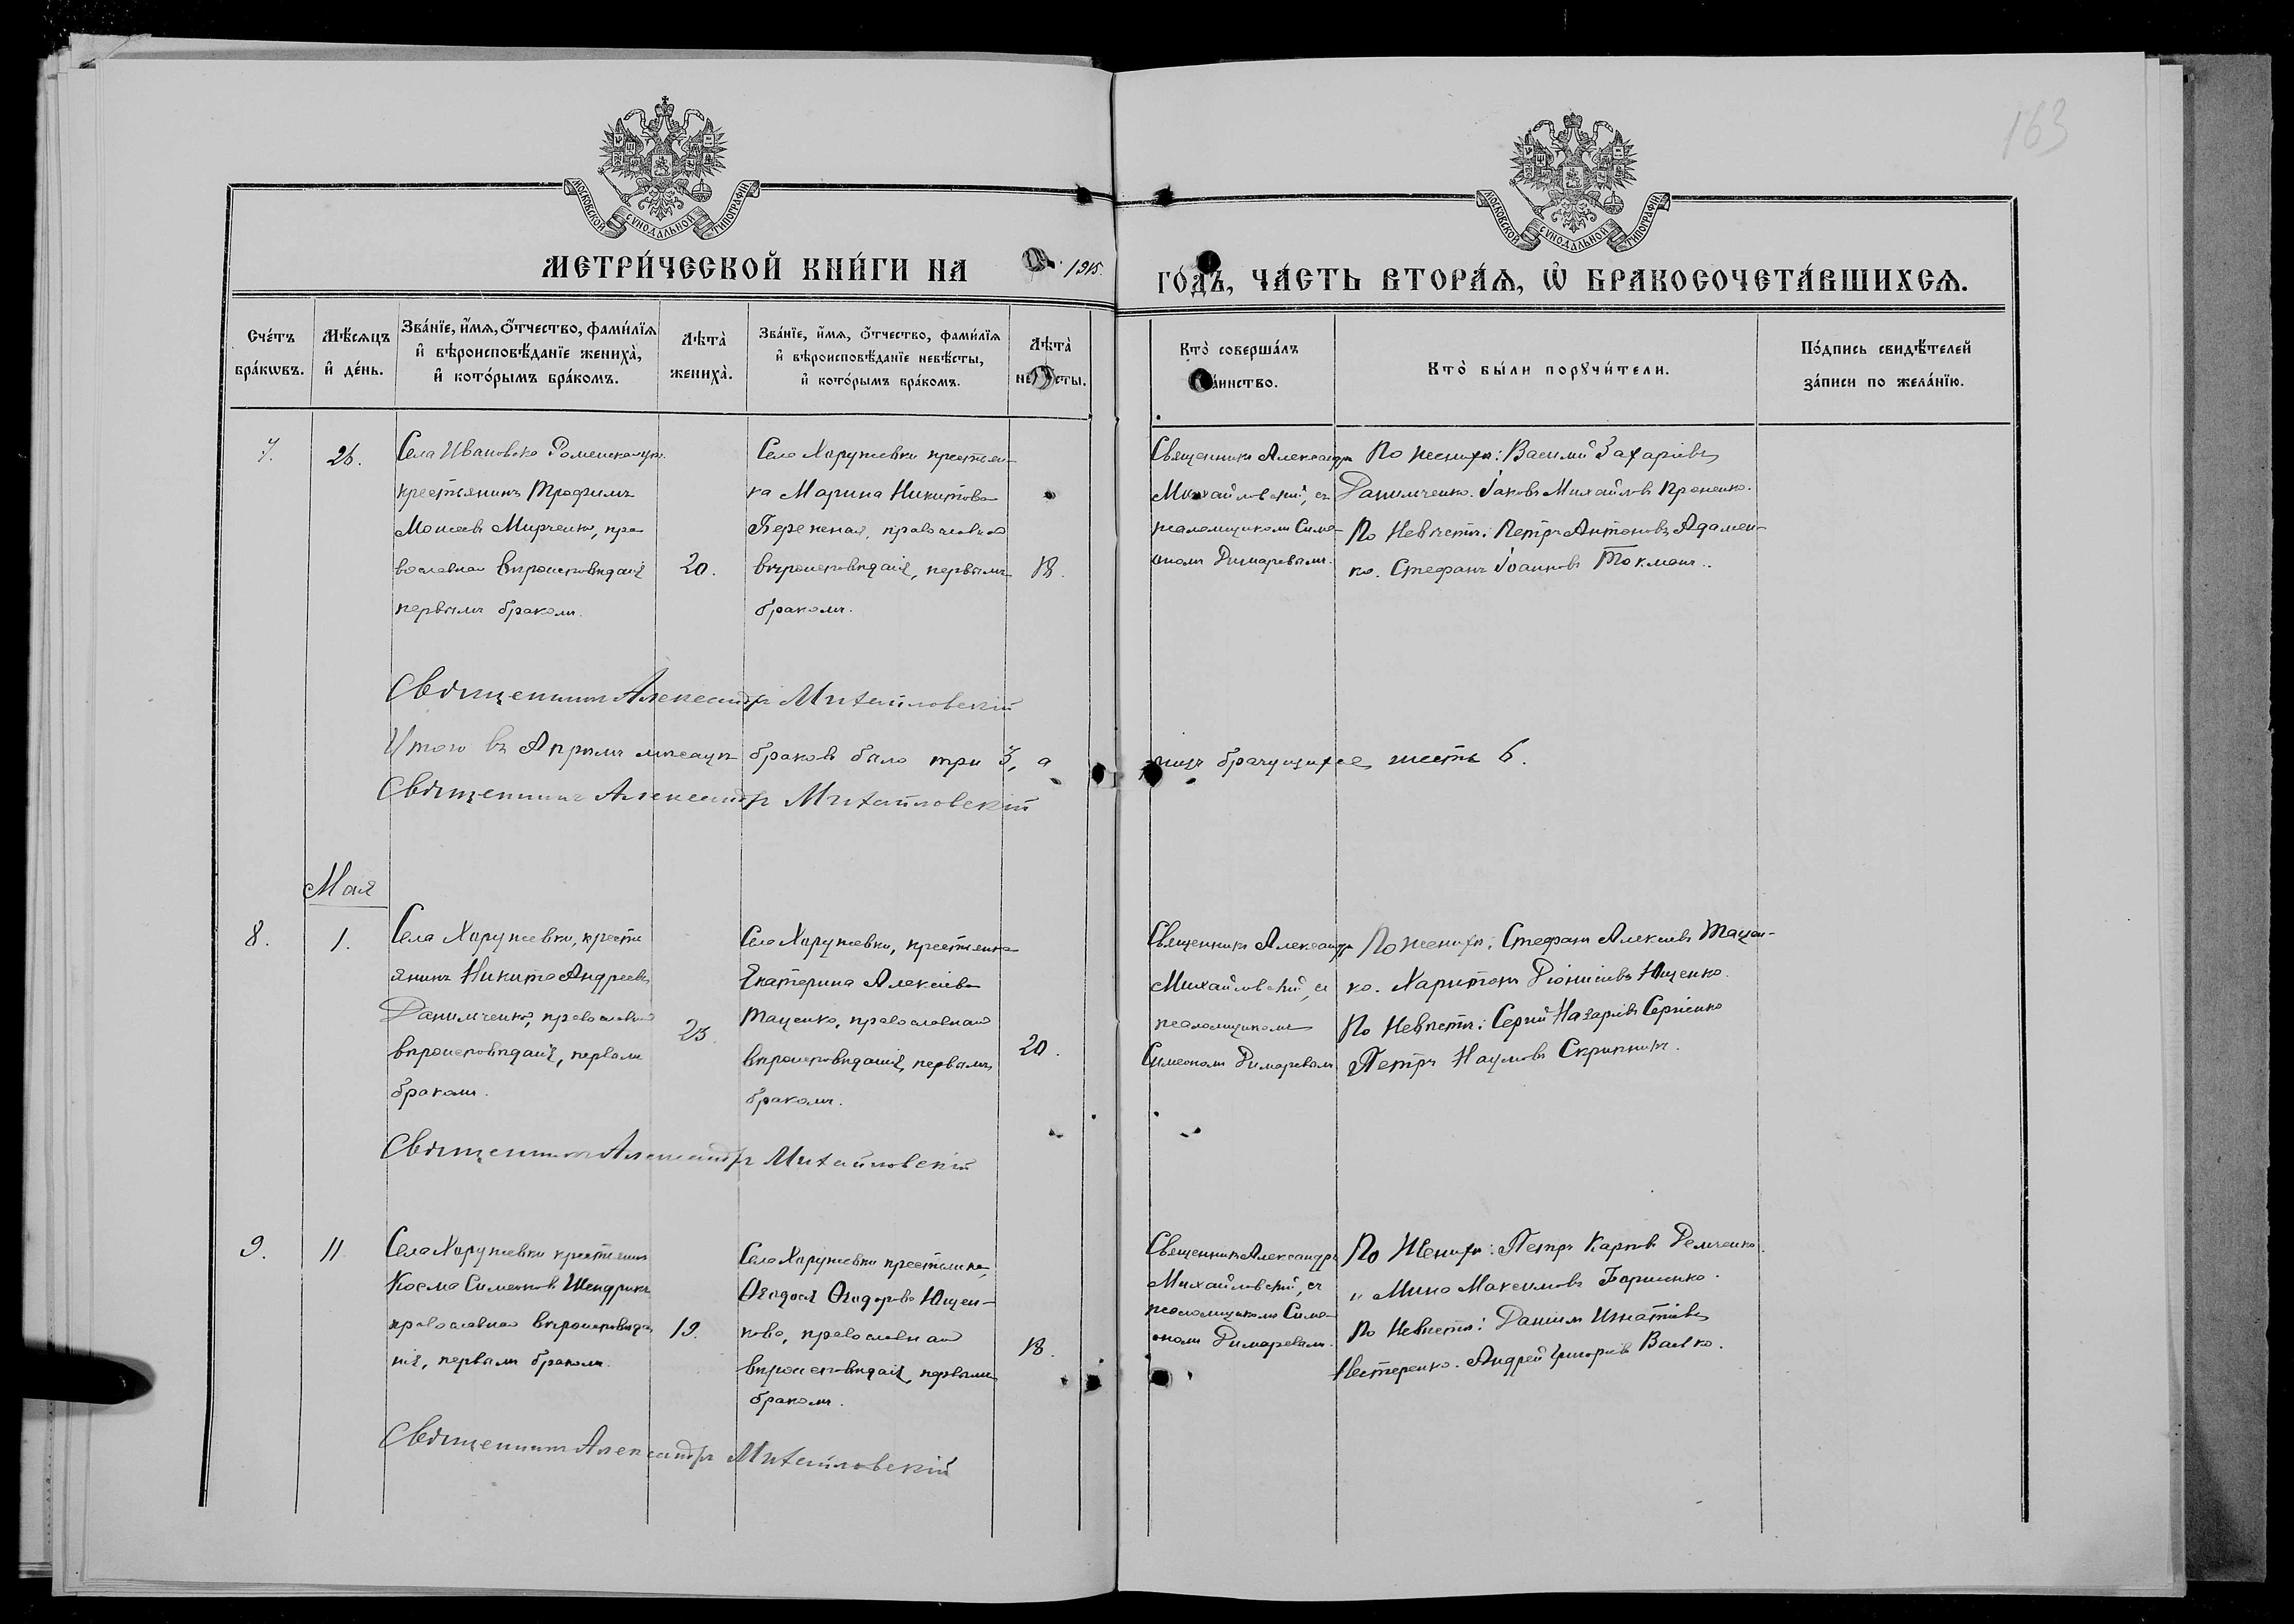 163
МОСКОВСКОЙ СѴНОДАЛЬНОЙ ТИПОГРАФІИ
МОСКОВСКОЙ СѴНОДАЛЬНОЙ ТИПОГРАФІИ
МЕТРИ́ЧЕСКОЙ КНИ́ГИ НА 1915 ГО́ДЪ, ЧА́СТЬ ВТОРА́Ѧ, Ѽ БРАКОСОЧЕТА́ВШИХСѦ.
Сче́тъ бра́кѡвъ.
Мѣ́сѧцъ и҆ де́нь.
Зва́нїе, и҆́мѧ, ѻ҆́тчество, фами́лїѧ и҆ вѣроисповѣ́данїе жениха̀, и҆ кото́рымъ бра́комъ.
Лѣта̀ жениха̀.
Зва́нїе, и҆́мѧ, ѻ҆́тчество, фами́лїѧ и҆ вѣроисповѣ́данїе невѣ́сты, и҆ кото́рымъ бра́комъ.
Лѣта̀ не сты.
Кто̀ соверша́лъ а́инство.
Кто̀ бы́ли порꙋчи́тели.
По́дпись свидѣ́телей за́писи по жела́нїю.
7.
26.
Села Ивановско Роменскаго у.
крестьянинъ Трофимъ
Моисеевъ Мирченко, пра-
вославнаго вѣроисповѣданія
первымъ бракомъ.
20.
Села Харушевки крестьян-
ка Марина Никитова
Бережная, православнаго
вѣроисповѣданія, первымъ
бракомъ.
18.
Священникъ Александръ
Михайловскій, съ
псаломщикомъ Симе-
ономъ Димаревымъ.
По женихѣ: Василий Захаріевъ
Данильченко. Іаковъ Михайловъ Проненко.
По Невѣстѣ: Петръ Антоновъ Адамен-
ко. Стефанъ Іоанновъ Токмань.
Священникъ Александръ Михайловскій
Итого въ Апрѣлѣ мѣсяцѣ браковъ было три 3, а
нихъ брачущихся шесть 6.
Священникъ Александръ Михайловскій
Мая
8.
1.
Села Харушевки, кресть
янинъ Никита Андреевъ
Данильченко, православнаго
вѣроисповѣданія, первымъ
бракомъ.
23.
Села Харушевки, крестьянка
Екатерина Алексіева
Таценко, православнаго
вѣроисповѣданія, первымъ
бракомъ.
20.
Священникъ Александръ
Михайловскій, съ
псаломщикомъ
Симеономъ Димаревымъ
По женихѣ: Стефанъ Алексіевъ Тацен-
ко. Харитонъ Діонисіевъ Ющенко.
По Невѣстѣ: Сергій Назаріевъ Сергіенко
Петръ Наумовъ Скрипникъ.
Священникъ Александръ Михайловскій
9.
11
Села Харушевки крестьянинъ
Косма Симеоновъ Шендрикъ
православнаго вѣроисповѣда
нія, первымъ бракомъ.
19.
Села Харушевки крестьянка,
Ѳеодосія Ѳеодорова Ющен-
кова, православнаго
вѣроисповѣданія, первымъ
бракомъ.
18.
Священникъ Александръ
Михайловскій, съ
псаломщикомъ Симе-
ономъ Димаревымъ.
По Женихѣ: Петръ Карповъ Демченко.
" Мина Максимовъ Борисенко.
По Невѣстѣ: Даніилъ Игнатіевъ
Нестеренко. Андрей Григоріевъ Валко.
Священникъ Александръ Михайловскій